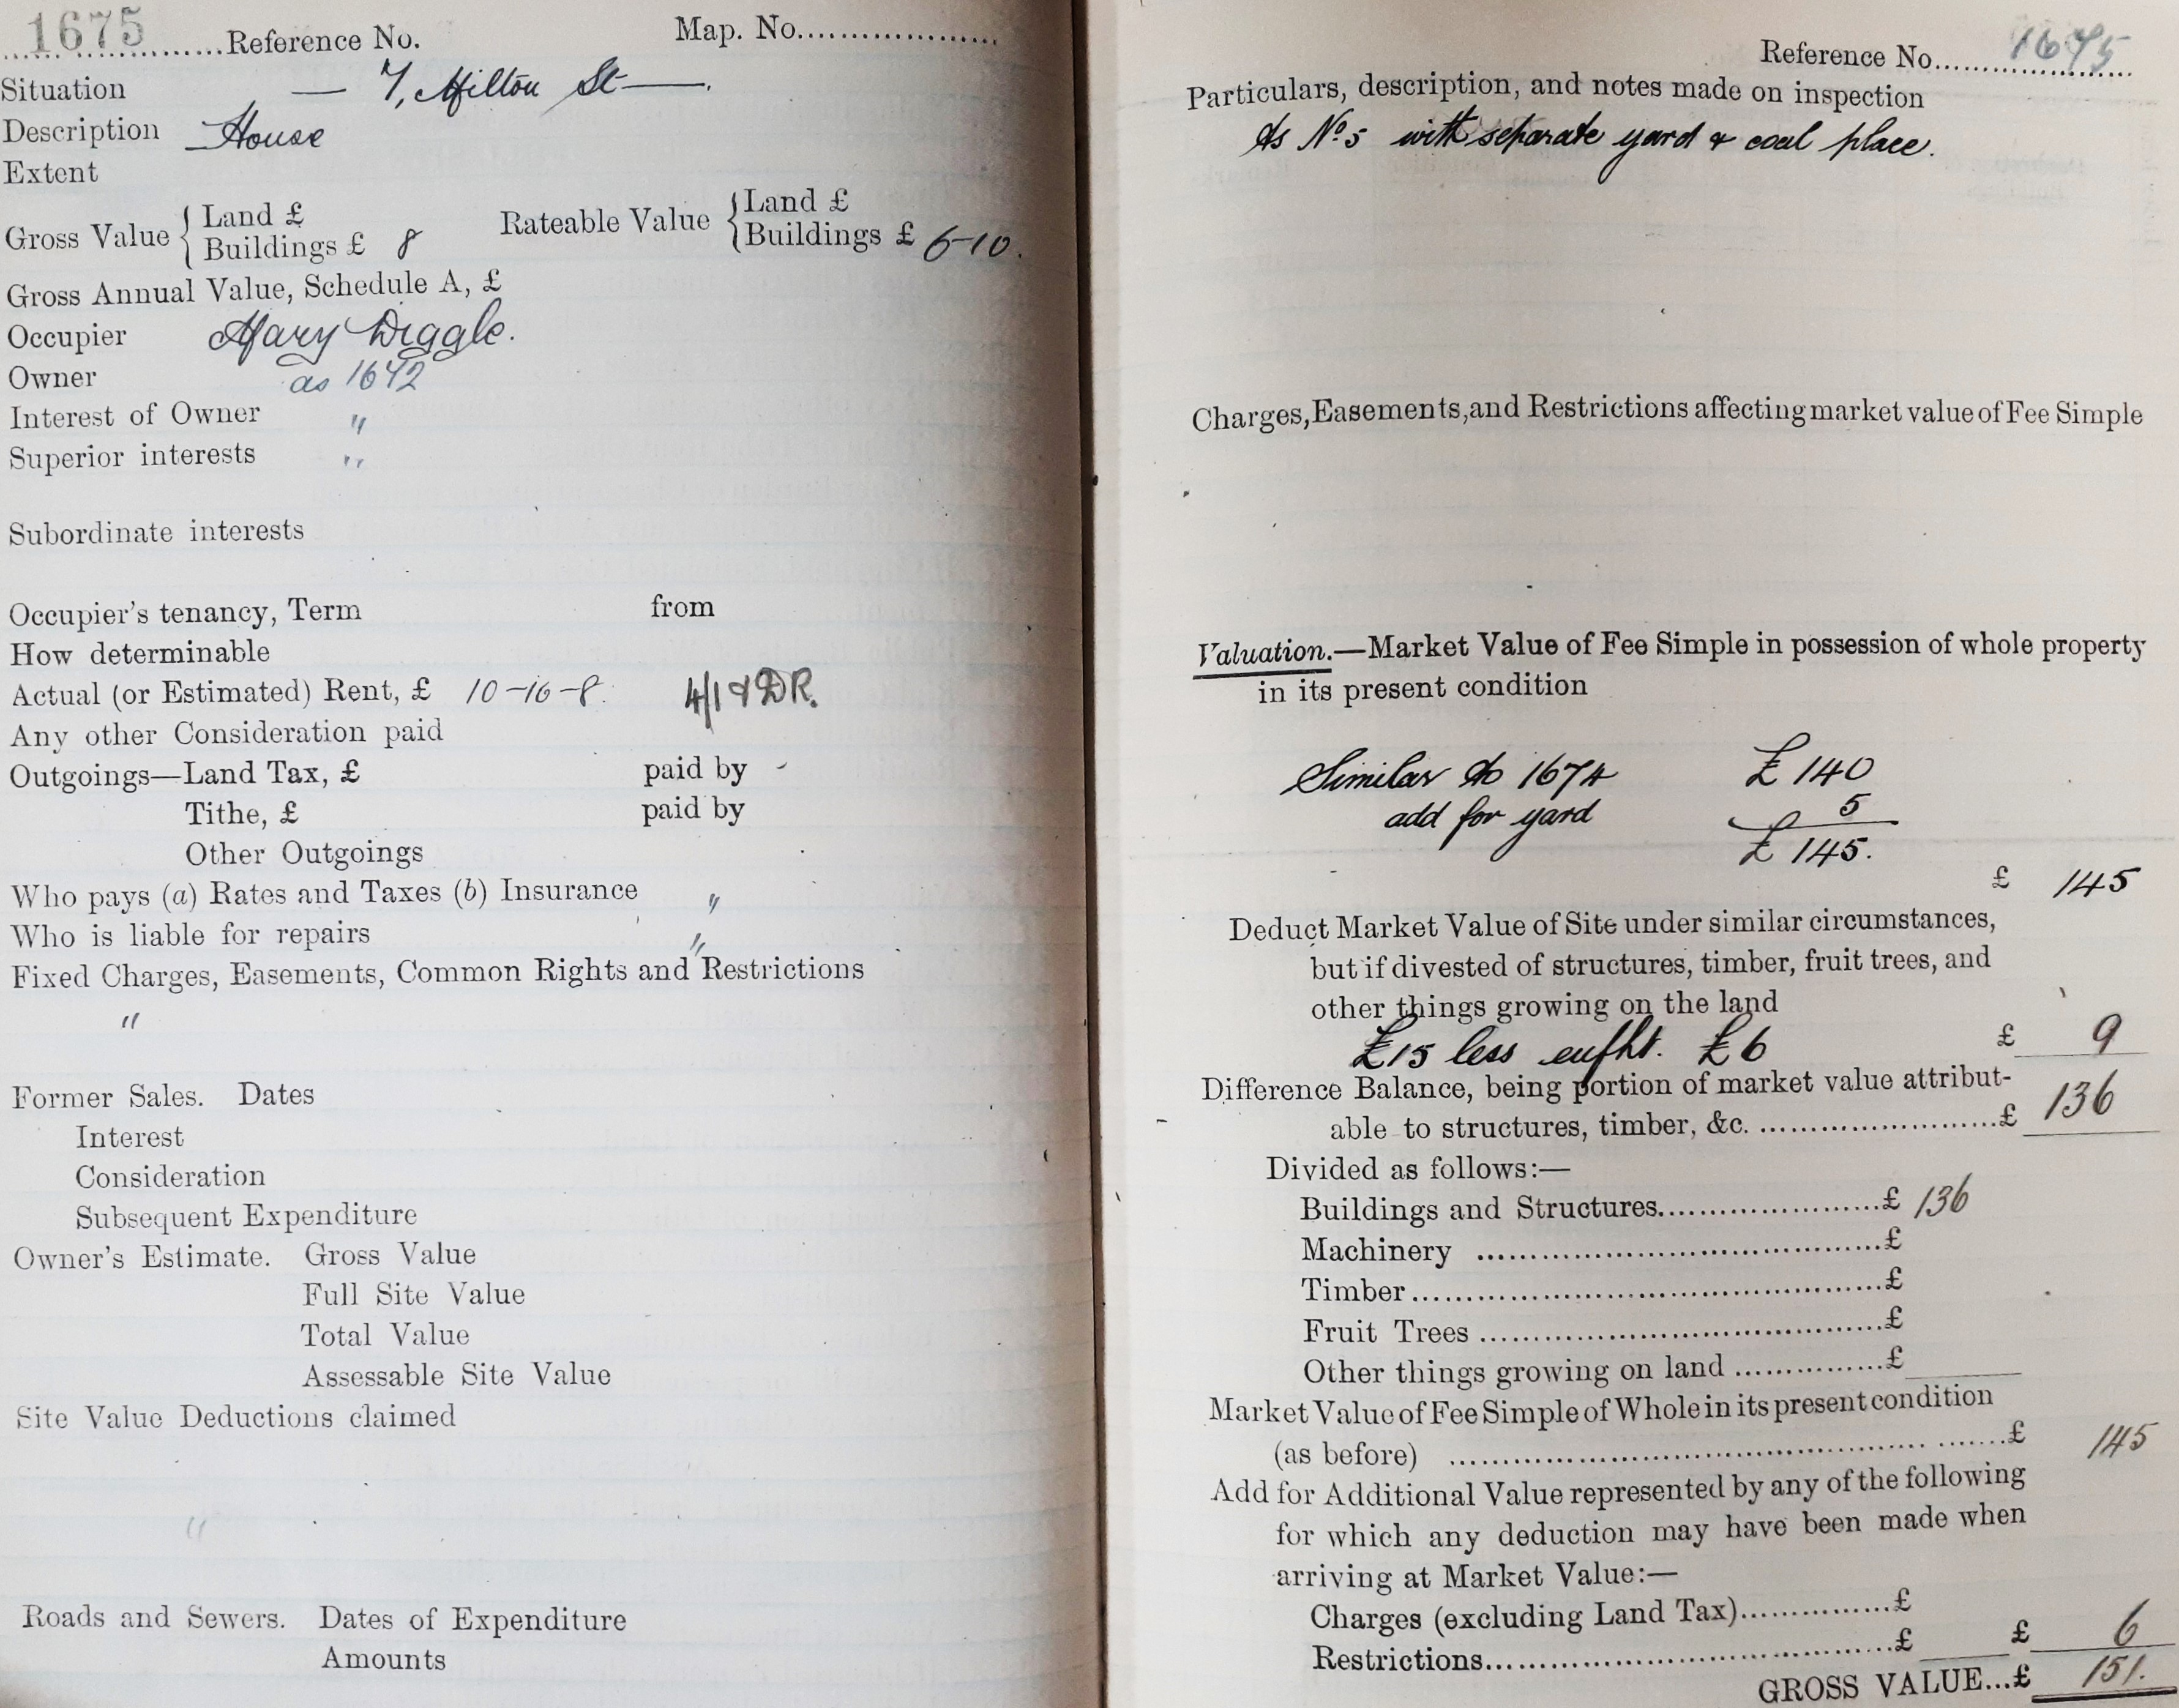 1675 Reference No. Map. No.
Situation — 7, Milton St —.
Description House
Extent
Gross Value { Land £ Rateable Value { Land £
Buildings £ 8 Buildings £ 6-10.
Gross Annual Value, Schedule A, £
Occupier Mary Diggle.
Owner as 1672
Interest of Owner "
Superior interests "
Subordinate interests
Occupier's tenancy, Term from
How determinable
Actual (or Estimated) Rent, £ 10-16-8. 4/1 & DR.
Any other Consideration paid
Outgoings—Land Tax, £ paid by -
Tithe, £ paid by
Other Outgoings
Who pays (a) Rates and Taxes (b) Insurance "
Who is liable for repairs "
Fixed Charges, Easements, Common Rights and Restrictions
"
Former Sales. Dates
Interest
Consideration
Subsequent Expenditure
Owner's Estimate. Gross Value
Full Site Value
Total Value
Assessable Site Value
Site Value Deductions claimed
"
Roads and Sewers. Dates of Expenditure
Amounts
Reference No. 1675
Particulars, description, and notes made on inspection
As No. 5 with separate yard & coal place.
Charges, Easements, and Restrictions affecting market value of Fee Simple
Valuation.—Market Value of Fee Simple in possession of whole property
in its present condition
Similar to 1674 £ 140
add for yard 5
£ 145.
£ 145
Deduct Market Value of Site under similar circumstances,
but if divested of structures, timber, fruit trees, and
other things growing on the land
£15 less £6 £ 9
Difference Balance, being portion of market value attribut-
able to structures, timber, &c. £ 136
Divided as follows:—
Buildings and Structures £ 136
Machinery £
Timber £
Fruit Trees £
Other things growing on land £
Market Value of Fee Simple of Whole in its present condition
(as before) £ 145
Add for Additional Value represented by any of the following
for which any deduction may have been made when
arriving at Market Value:—
Charges (excluding Land Tax) £
Restrictions £ £ 6
GROSS VALUE...£ 151.